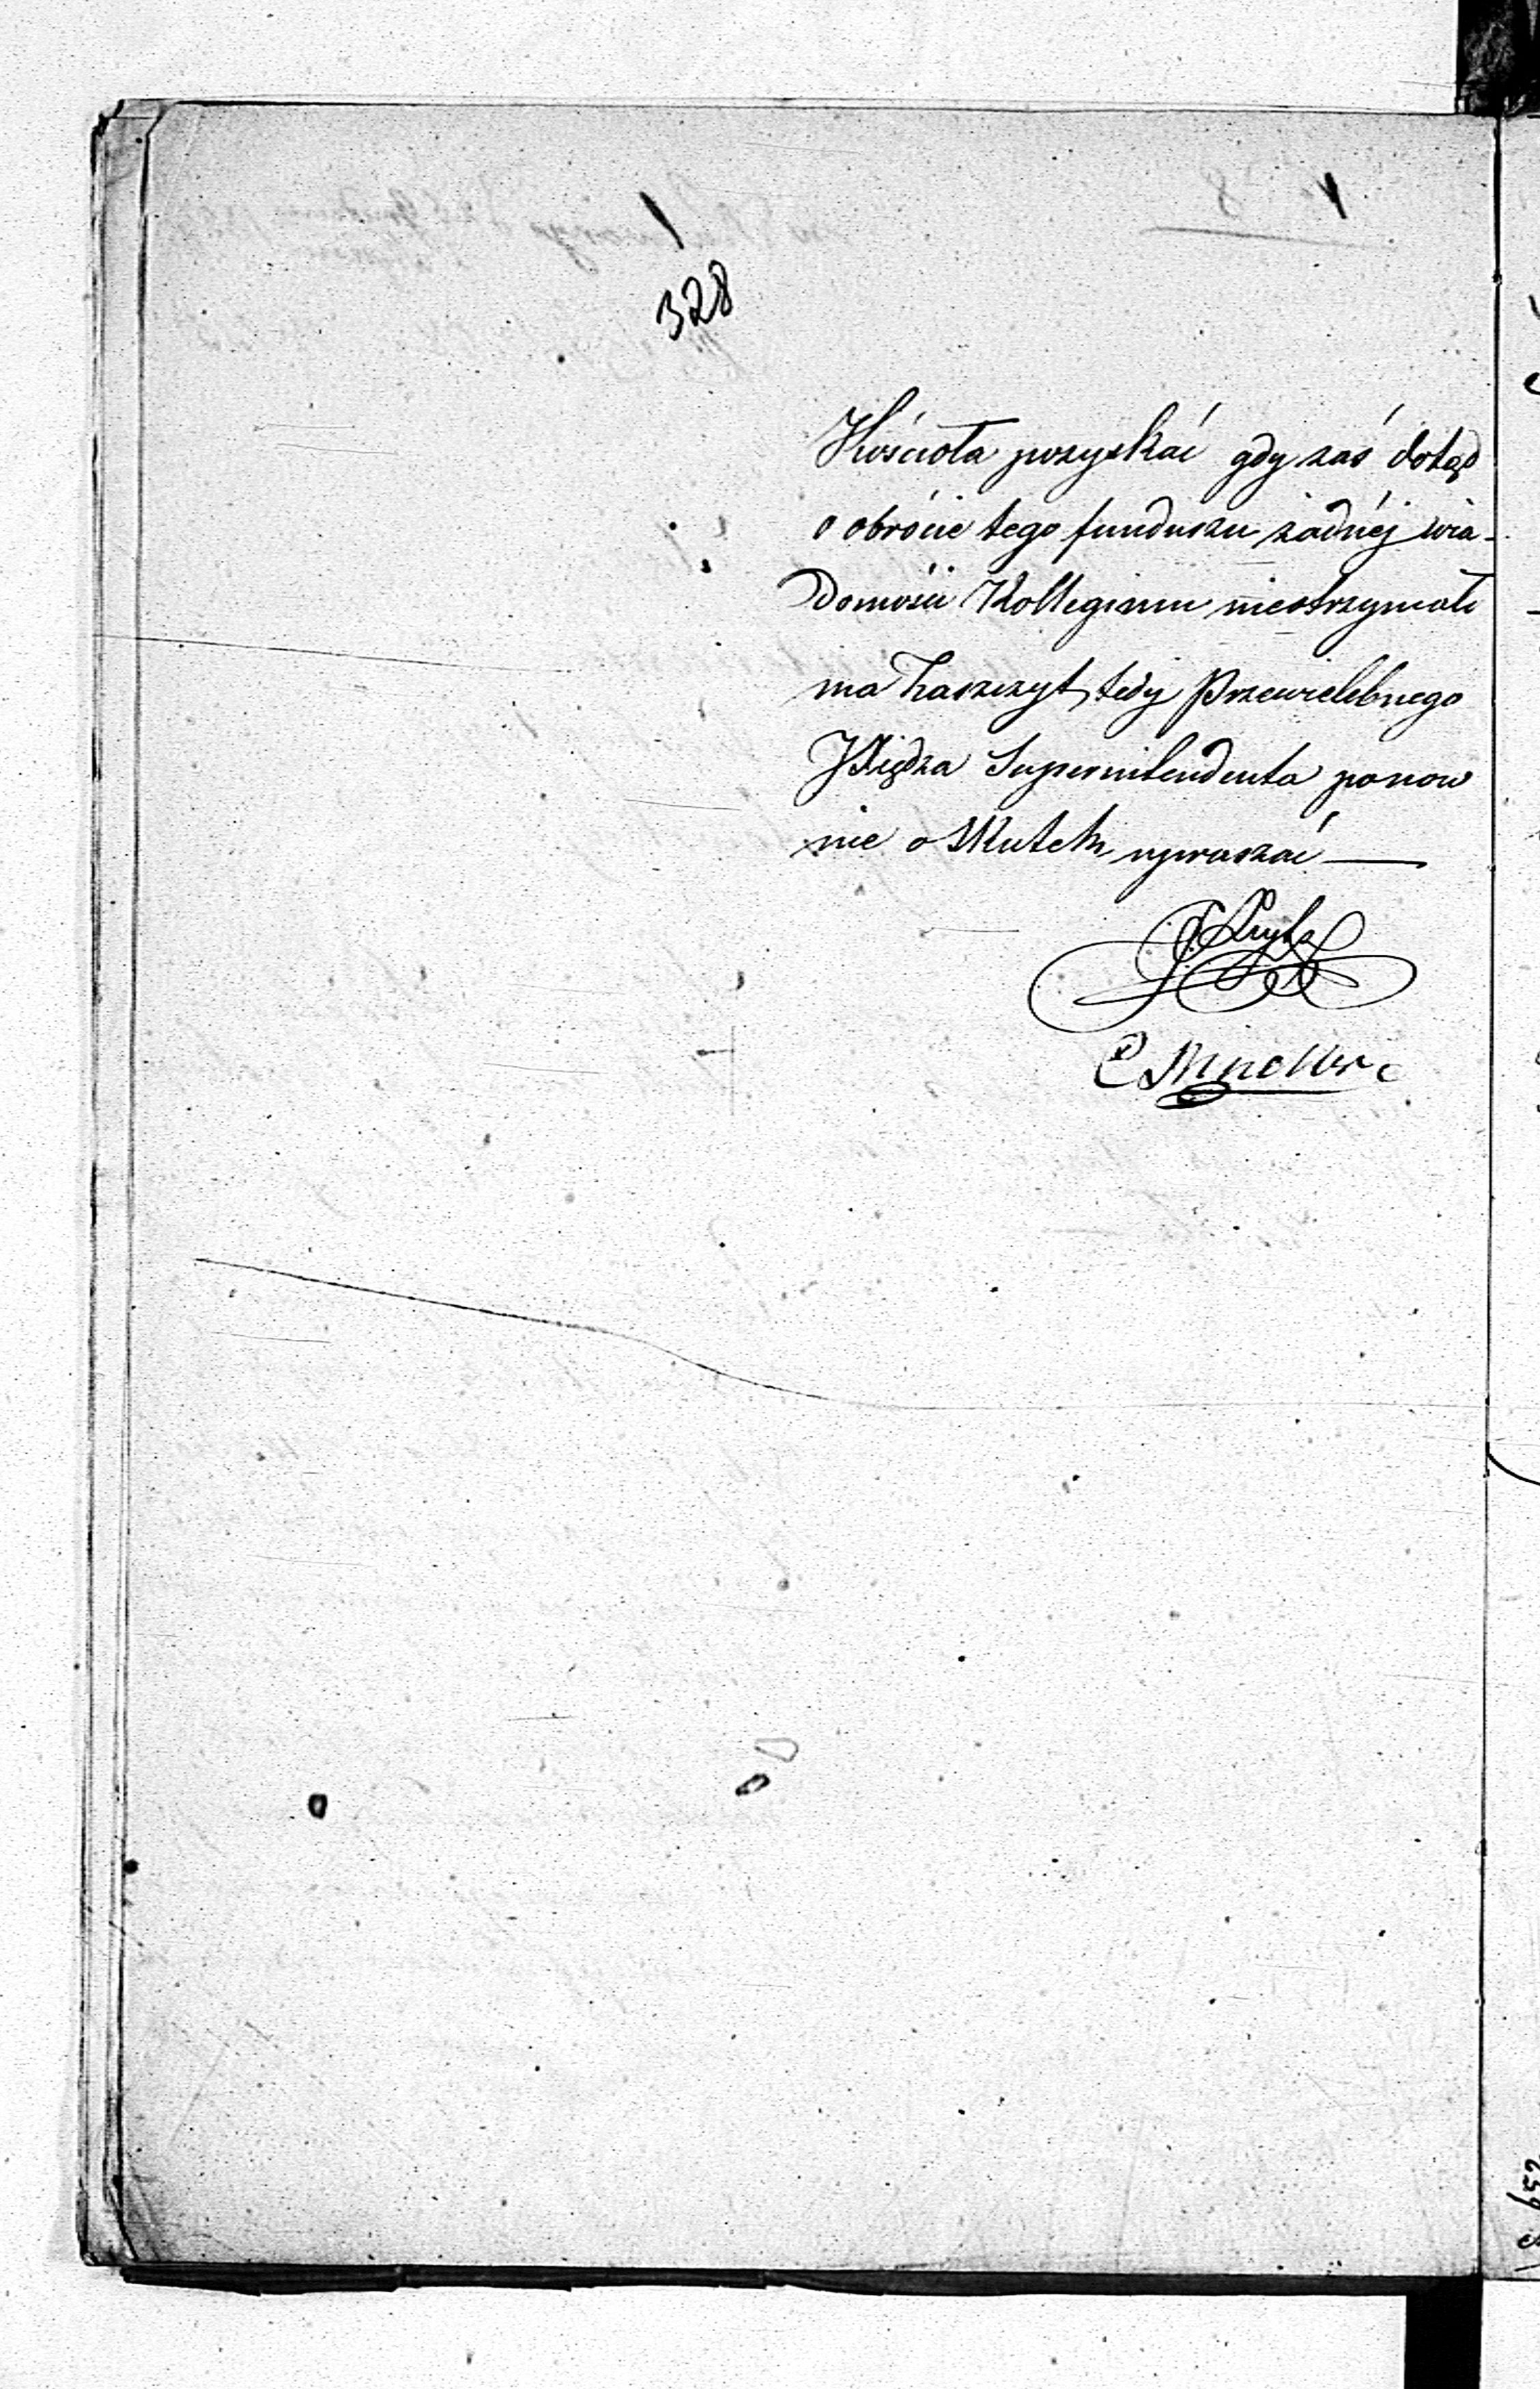 328
Kościoła pozyskać gdy zaś dotąd
o obrócie tego funduszu żadnéj wia-
domości Kollegium nieotrzymało
ma Zaszczyt tedy Przewielebnego
Xiędza Superintendenta ponow
nie o skutek upraszać